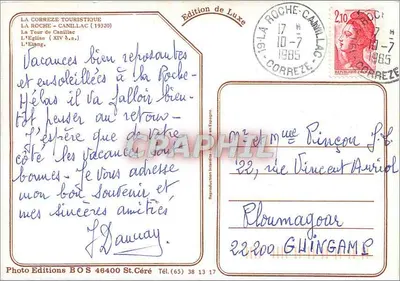 LA CORREZE TOURISTIQUE
LA ROCHE - CANILLAC (19320)
La Tour de Canillac
L'Eglise (XIV s.)
L'Etang.
Edition de Luxe
Vacances bien reposantes
et ensoleillées à la Roche
Hélas il va falloir bien-
tôt penser au retour -
J'espère que de votre
côté les vacances sont
bonnes - Je vous adresse
mon bon souvenir et
mes sincères amitiés
J Daunay
Photo Editions BOS 46400 St. Céré Tél. (65) 38 13 17
CARPHIL
19 LA ROCHE-CANILLAC
17 H
10-7
1985
CORREZE
2,10
10-7
1985
CORREZE
Mr et Mme Pinçon
22, rue Vincent Auriol
Ploumagoar
22200 GUINGAMP